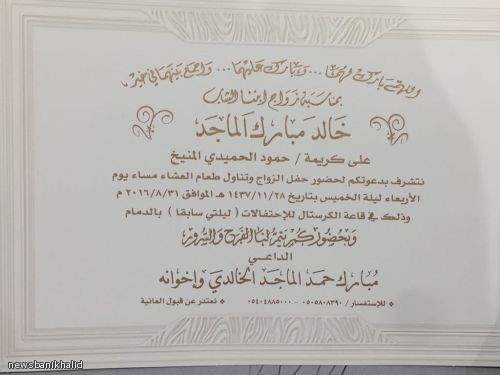 اللهم بارك لهما... وبارك عليهما... واجمع بينهما في خير
بمناسبة زواج ابننا الشاب
خالد مبارك الماجد
على كريمة / حمود الحميدي المنيخ
نتشرف بدعوتكم لحضور حفل الزواج وتناول طعام العشاء مساء يوم
الأربعاء ليلة الخميس بتاريخ ١٤٣٧/١١/٢٨ هـ الموافق ٢٠١٦/٨/٣١ م
وذلك في قاعة الكرستال للإحتفالات ( ليلتي سابقا ) بالدمام
وبحضوركم يتم لنا الفرح والسرور
الداعي
مبارك حمد الماجد الخالدي وإخوانه
* للإستفسار / ٠٥٠٥٨٠٨٣٩٠ - ٠٥٤٠٤٨٨٥٠٠٠ * نعتذر عن قبول العانية
newsbanikhalid